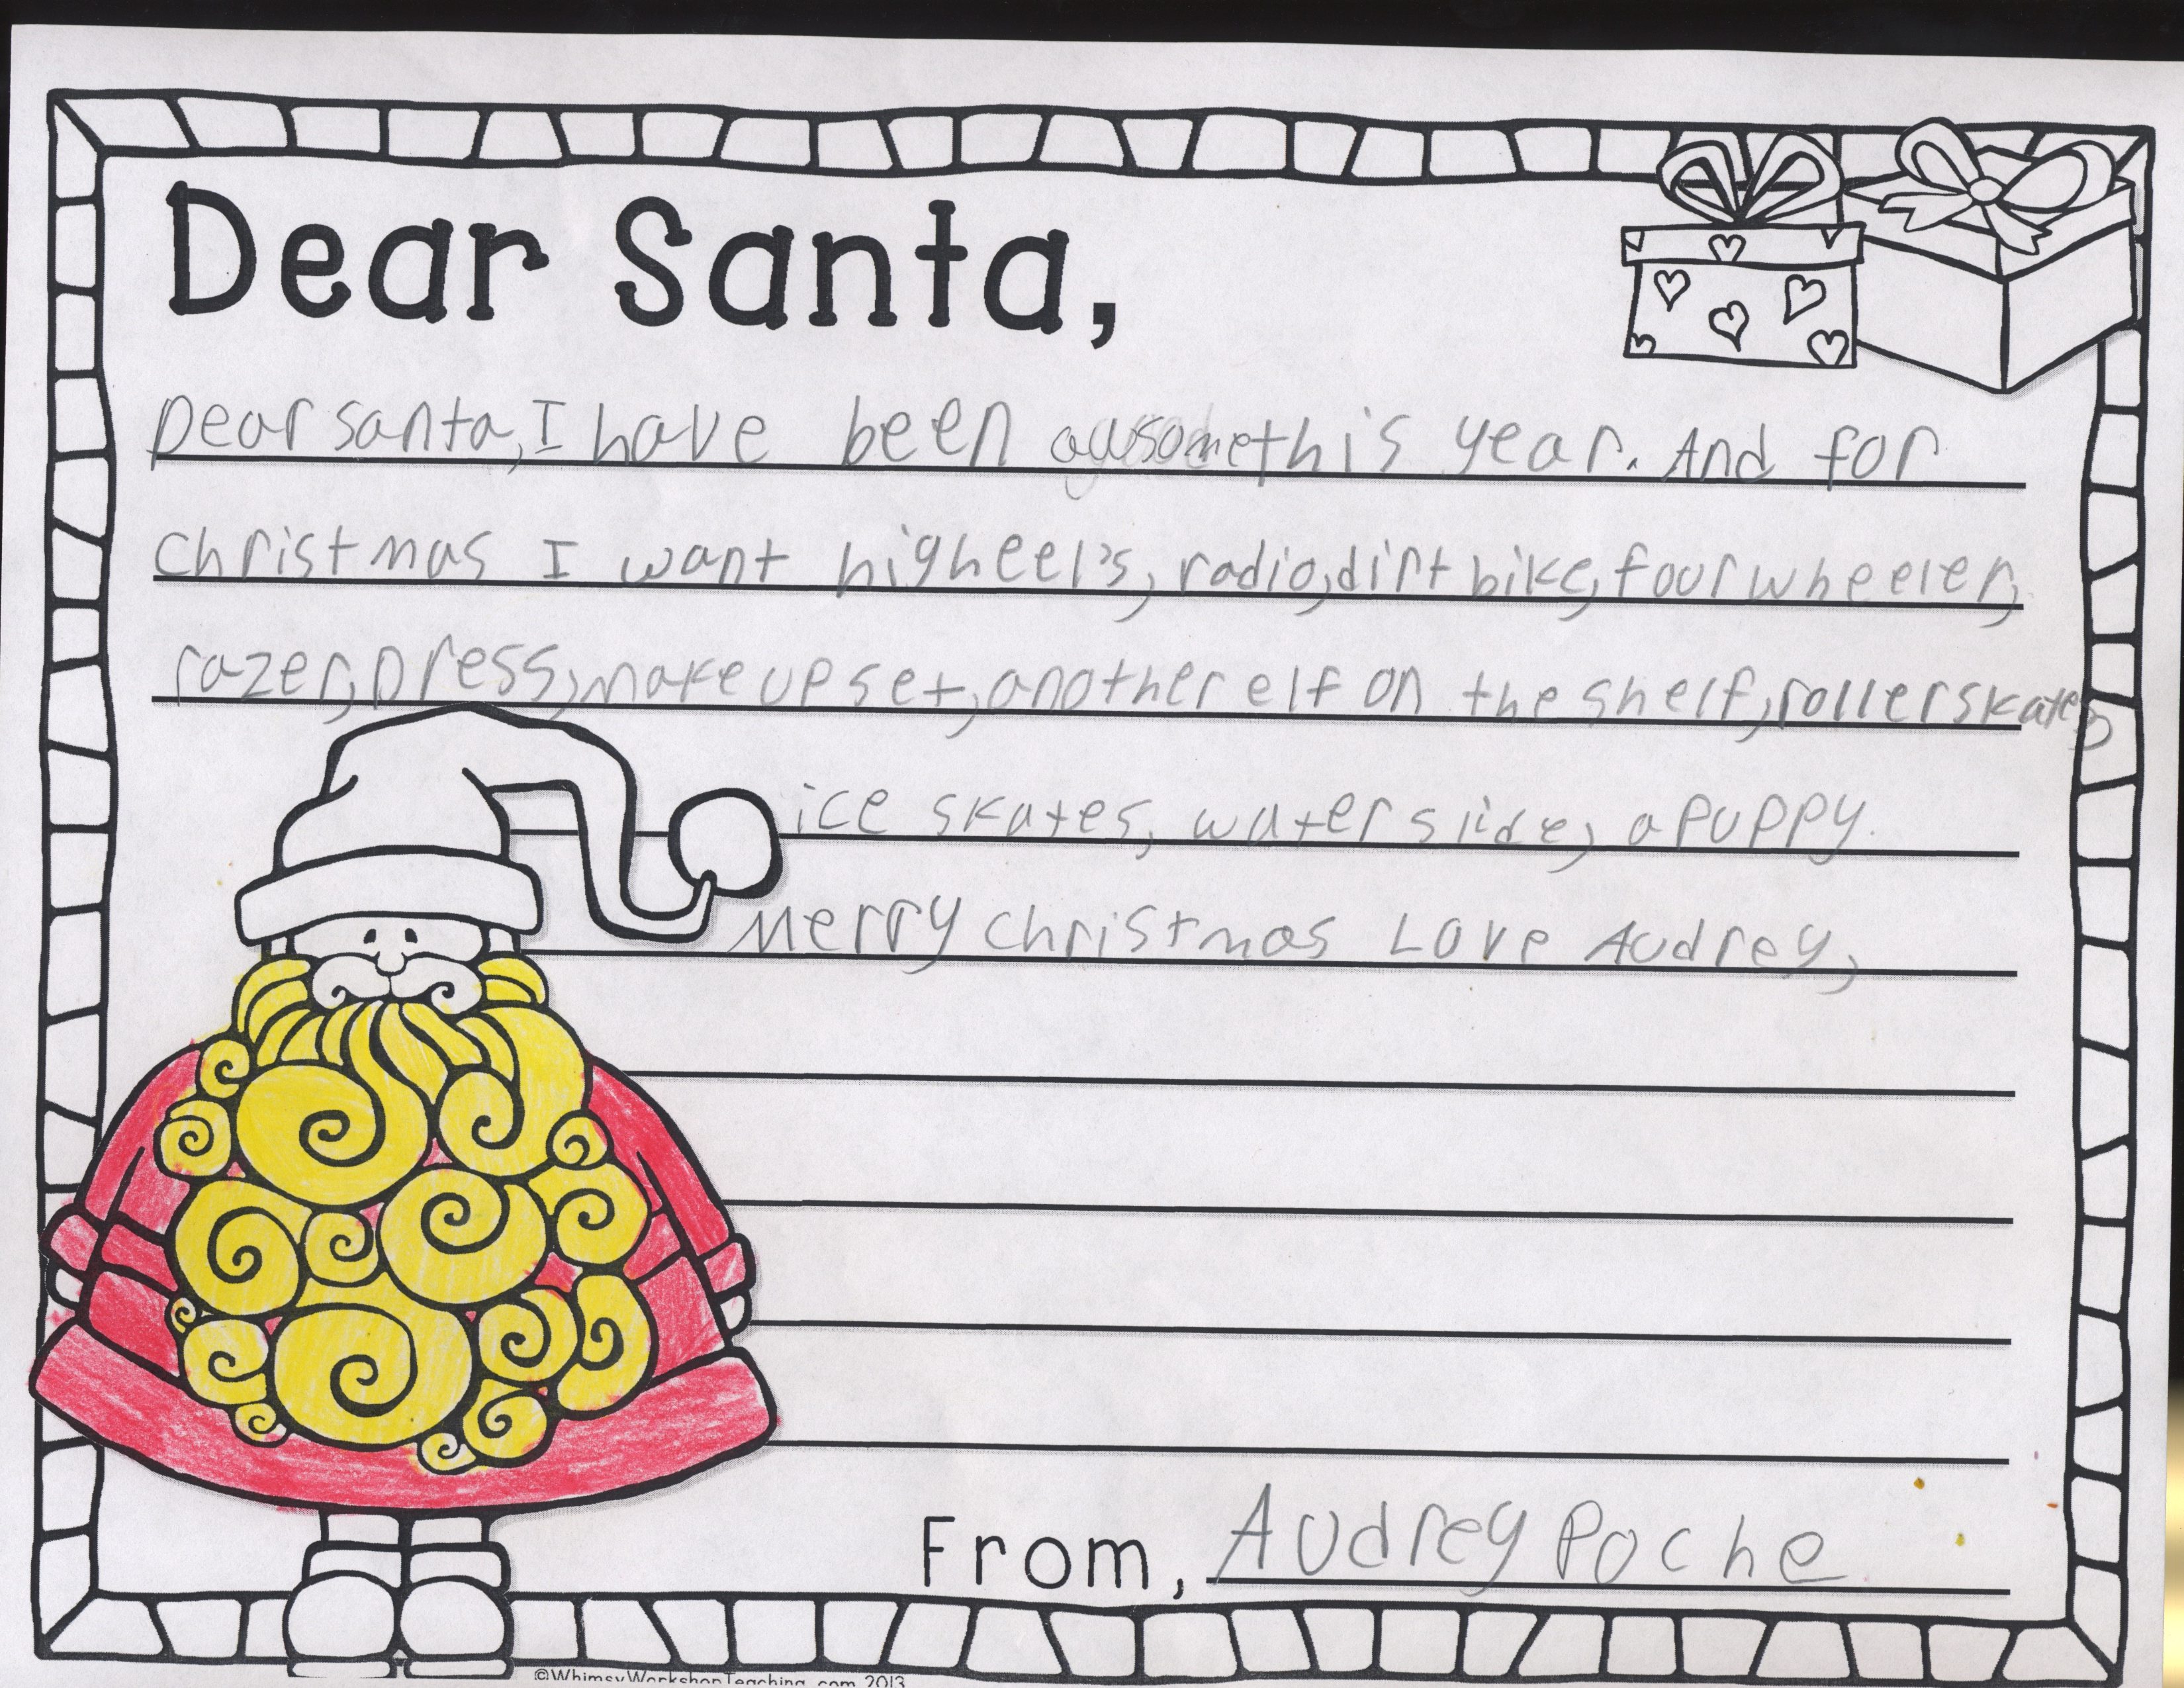 Dear Santa,
Dear santa, I have been awsome this year. And for
christmas I want higheel's, radio, dirt bike, four wheeler,
razer, Dress, make up set, another elf on the shelf, roller skates,
ice skates, water slide, a puppy.
Merry christmas Love Audrey,
From, Audrey Poche
©WhimsyWorkshopTeaching.com 2013